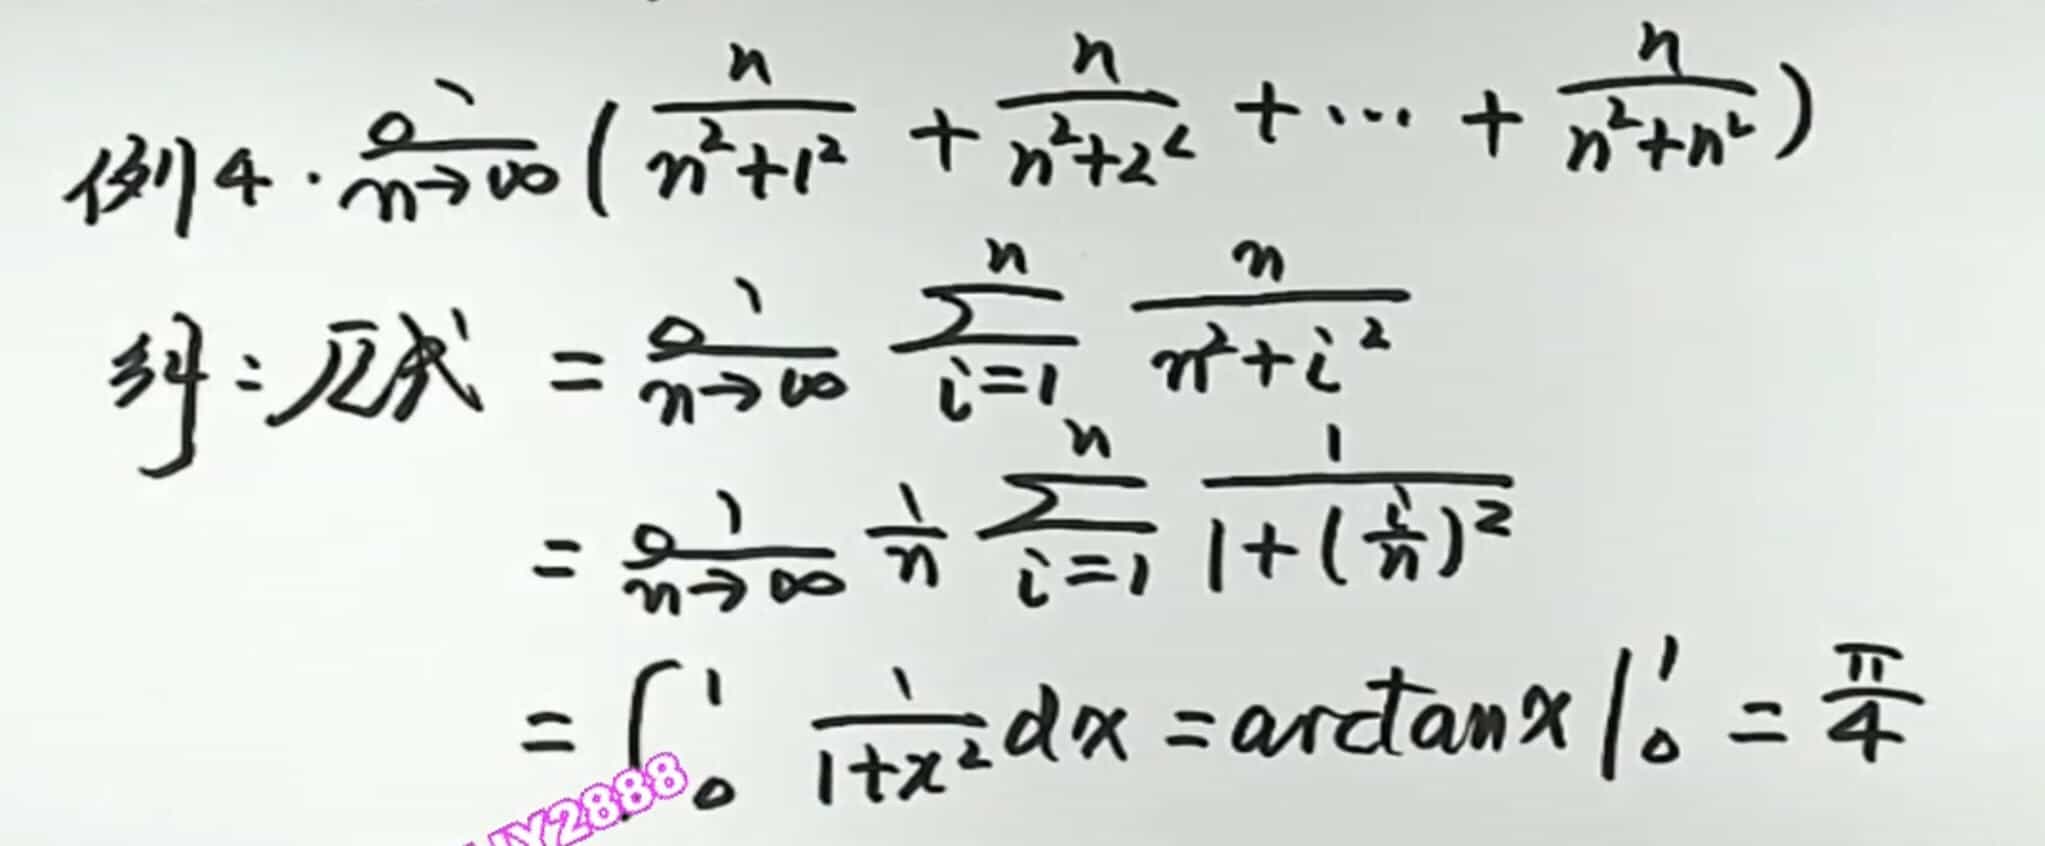 例4. lim n→∞ ( n/(n²+1²) + n/(n²+2²) + ⋯ + n/(n²+n²) )
解: 原式 = lim n→∞ ∑ i=1 n n/(n²+i²)
= lim n→∞ 1/n ∑ i=1 n 1/(1+(i/n)²)
= ∫₀¹ 1/(1+x²) dx = arctanx |₀¹ = π/4